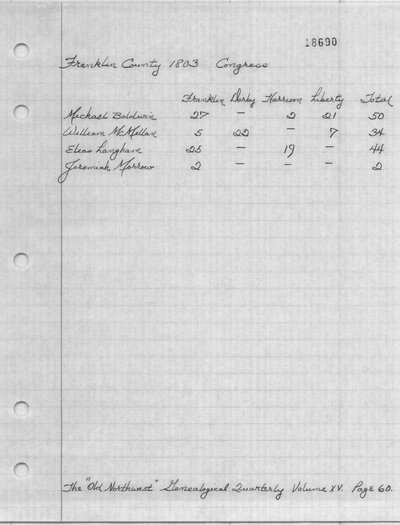 18690
Franklin County 1803 Congress
Franklin Darby Harrison Liberty Total
Michael Baldwin 27 – 2 21 50
William McMillan 5 22 – 7 34
Elias Langham 25 – 19 – 44
Jeremiah Morrow 2 – – – 2
The "Old Northwest" Genealogical Quarterly Volume XV. Page 60.